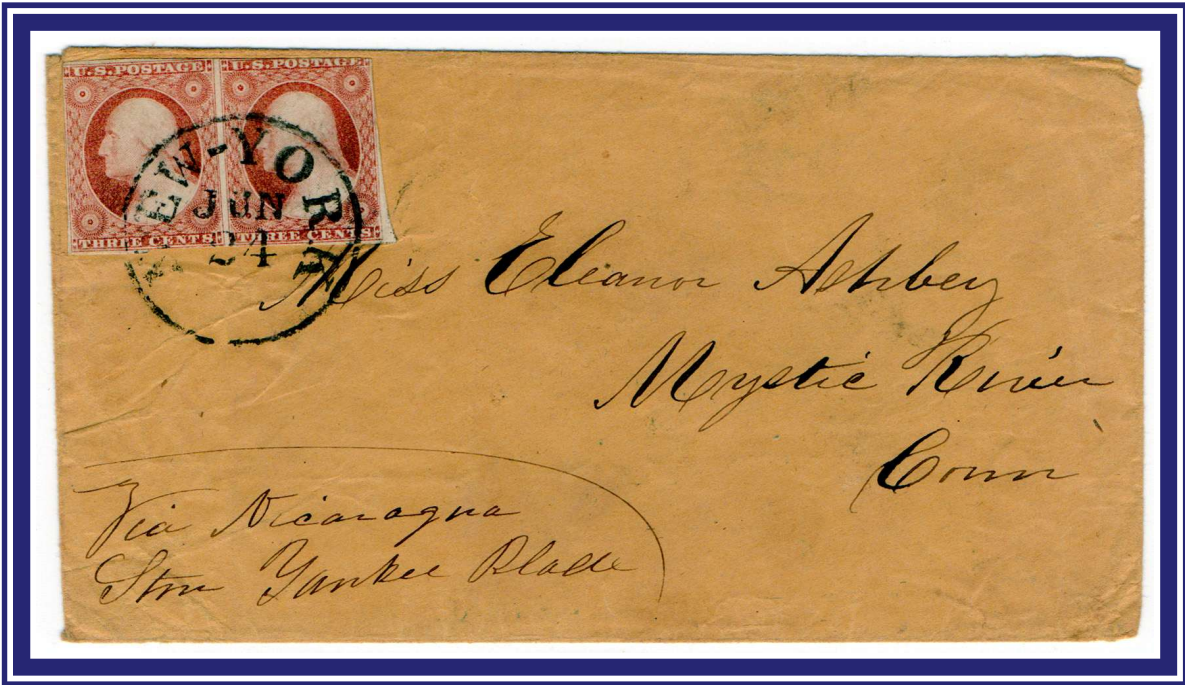 U.S. POSTAGE U.S. POSTAGE
THREE CENTS THREE CENTS
NEW-YORK
JUN
24
Miss Eleanor Ashbey
Mystic River
Conn
Via Nicaragua
Stmr Yankee Blade